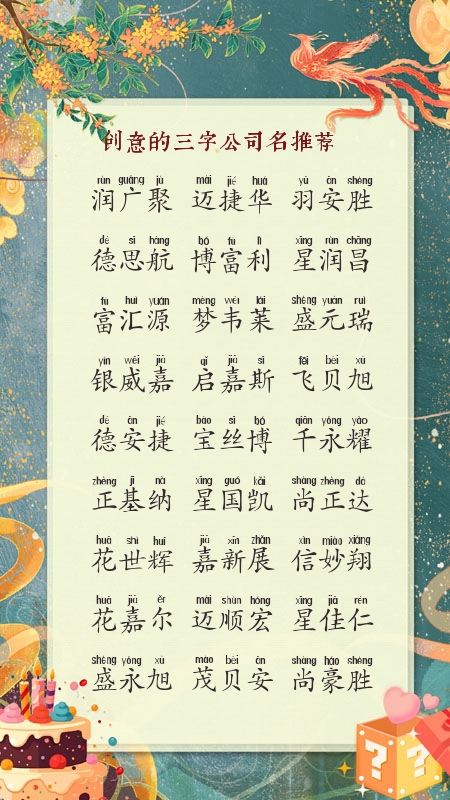 创意的三字公司名推荐
rùn guǎng jù mài jié huá yǔ ān shèng
润广聚 迈捷华 羽安胜
dé sī háng bó fù lì xīng rùn chāng
德思航 博富利 星润昌
fù huì yuán mèng wéi lái shèng yuán ruì
富汇源 梦韦莱 盛元瑞
yín wēi jiā qǐ jiā sī fēi bèi xù
银威嘉 启嘉斯 飞贝旭
dé ān jié bǎo sī bó qiān yǒng yào
德安捷 宝丝博 千永耀
zhèng jī nà xīng guó kǎi shàng zhèng dá
正基纳 星国凯 尚正达
huā shì huī jiā xīn zhǎn xìn miào xiáng
花世辉 嘉新展 信妙翔
huā jiā ěr mài shùn hóng xīng jiā rén
花嘉尔 迈顺宏 星佳仁
shèng yǒng xù mào bèi ān shàng háo shèng
盛永旭 茂贝安 尚豪胜
? ?